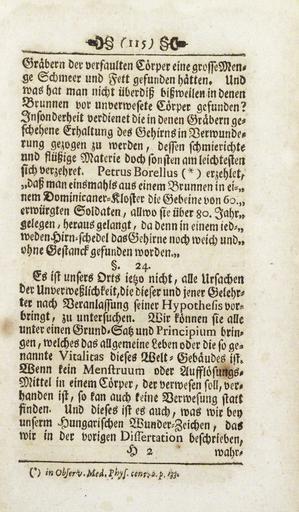 § (115) §
Gräbern der verfaulten Cörper eine grosse Men-
ge Schmeer und Fett gefunden hätten. Und
was hat man nicht überdiß bißweilen in denen
Brunnen vor unverwesete Cörper gefunden?
Insonderheit verdienet die in denen Gräbern ge-
schehene Erhaltung des Gehirns in Verwunde-
rung gezogen zu werden, dessen schmierichte
und flüßige Materie doch sonsten am leichtesten
sich verzehret. Petrus Borellus (*) erzehlet,
„daß man einsmahls aus einem Brunnen in ei-„
nem Dominicaner-Kloster die Gebeine von 60.„
erwürgten Soldaten, allwo sie über 80. Jahr„
gelegen, heraus gelangt, da denn in einem ied-„
weden Hirn-schedel das Gehirne noch weich und„
ohne Gestanck gefunden worden.„
§. 24.
Es ist unsers Orts ietzo nicht, alle Ursachen
der Unverweßlichkeit, die dieser und jener Gelehr-
ter nach Veranlassung seiner Hypothesis vor-
bringt, zu untersuchen. Wir können sie alle
unter einen Grund-Satz und Principium brin-
gen, welches das allgemeine Leben oder die so ge-
nannte Vitalitas dieses Welt-Gebäudes ist.
Wenn kein Menstruum oder Aufflösungs-
Mittel in einem Cörper, der verwesen soll, ver-
handen ist, so kan auch keine Verwesung statt
finden. Und dieses ist es auch, was wir bey
unserm Hungarischen Wunder-Zeichen, das
wir in der vorigen Dissertation beschrieben,
H 2 wahr-
(*) in Observ. Med. Phys. cent. 2. p. 133.